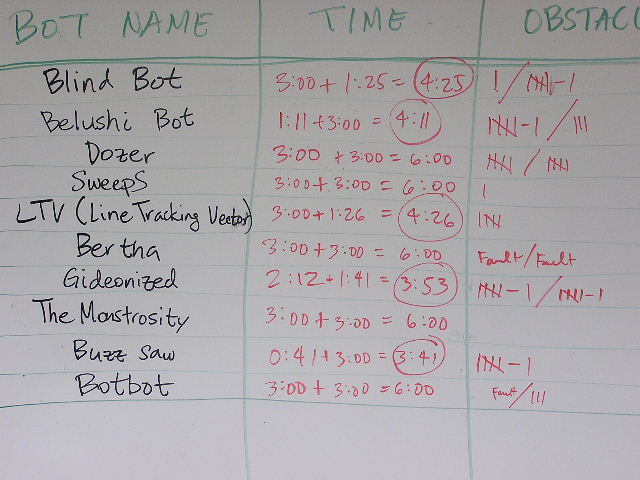 BOT NAME TIME OBSTAC
Blind Bot 3:00 + 1:25 = 4:25
Belushi Bot 1:11 + 3:00 = 4:11
Dozer 3:00 + 3:00 = 6:00
Sweeps 3:00 + 3:00 = 6:00
LTV (Line Tracking Vector) 3:00 + 1:26 = 4:26
Bertha 3:00 + 3:00 = 6:00 Fault/Fault
Gideonized 2:12 + 1:41 = 3:53
The Monstrosity 3:00 + 3:00 = 6:00
Buzz Saw 0:41 + 3:00 = 3:41
Botbot 3:00 + 3:00 = 6:00 Fault/III